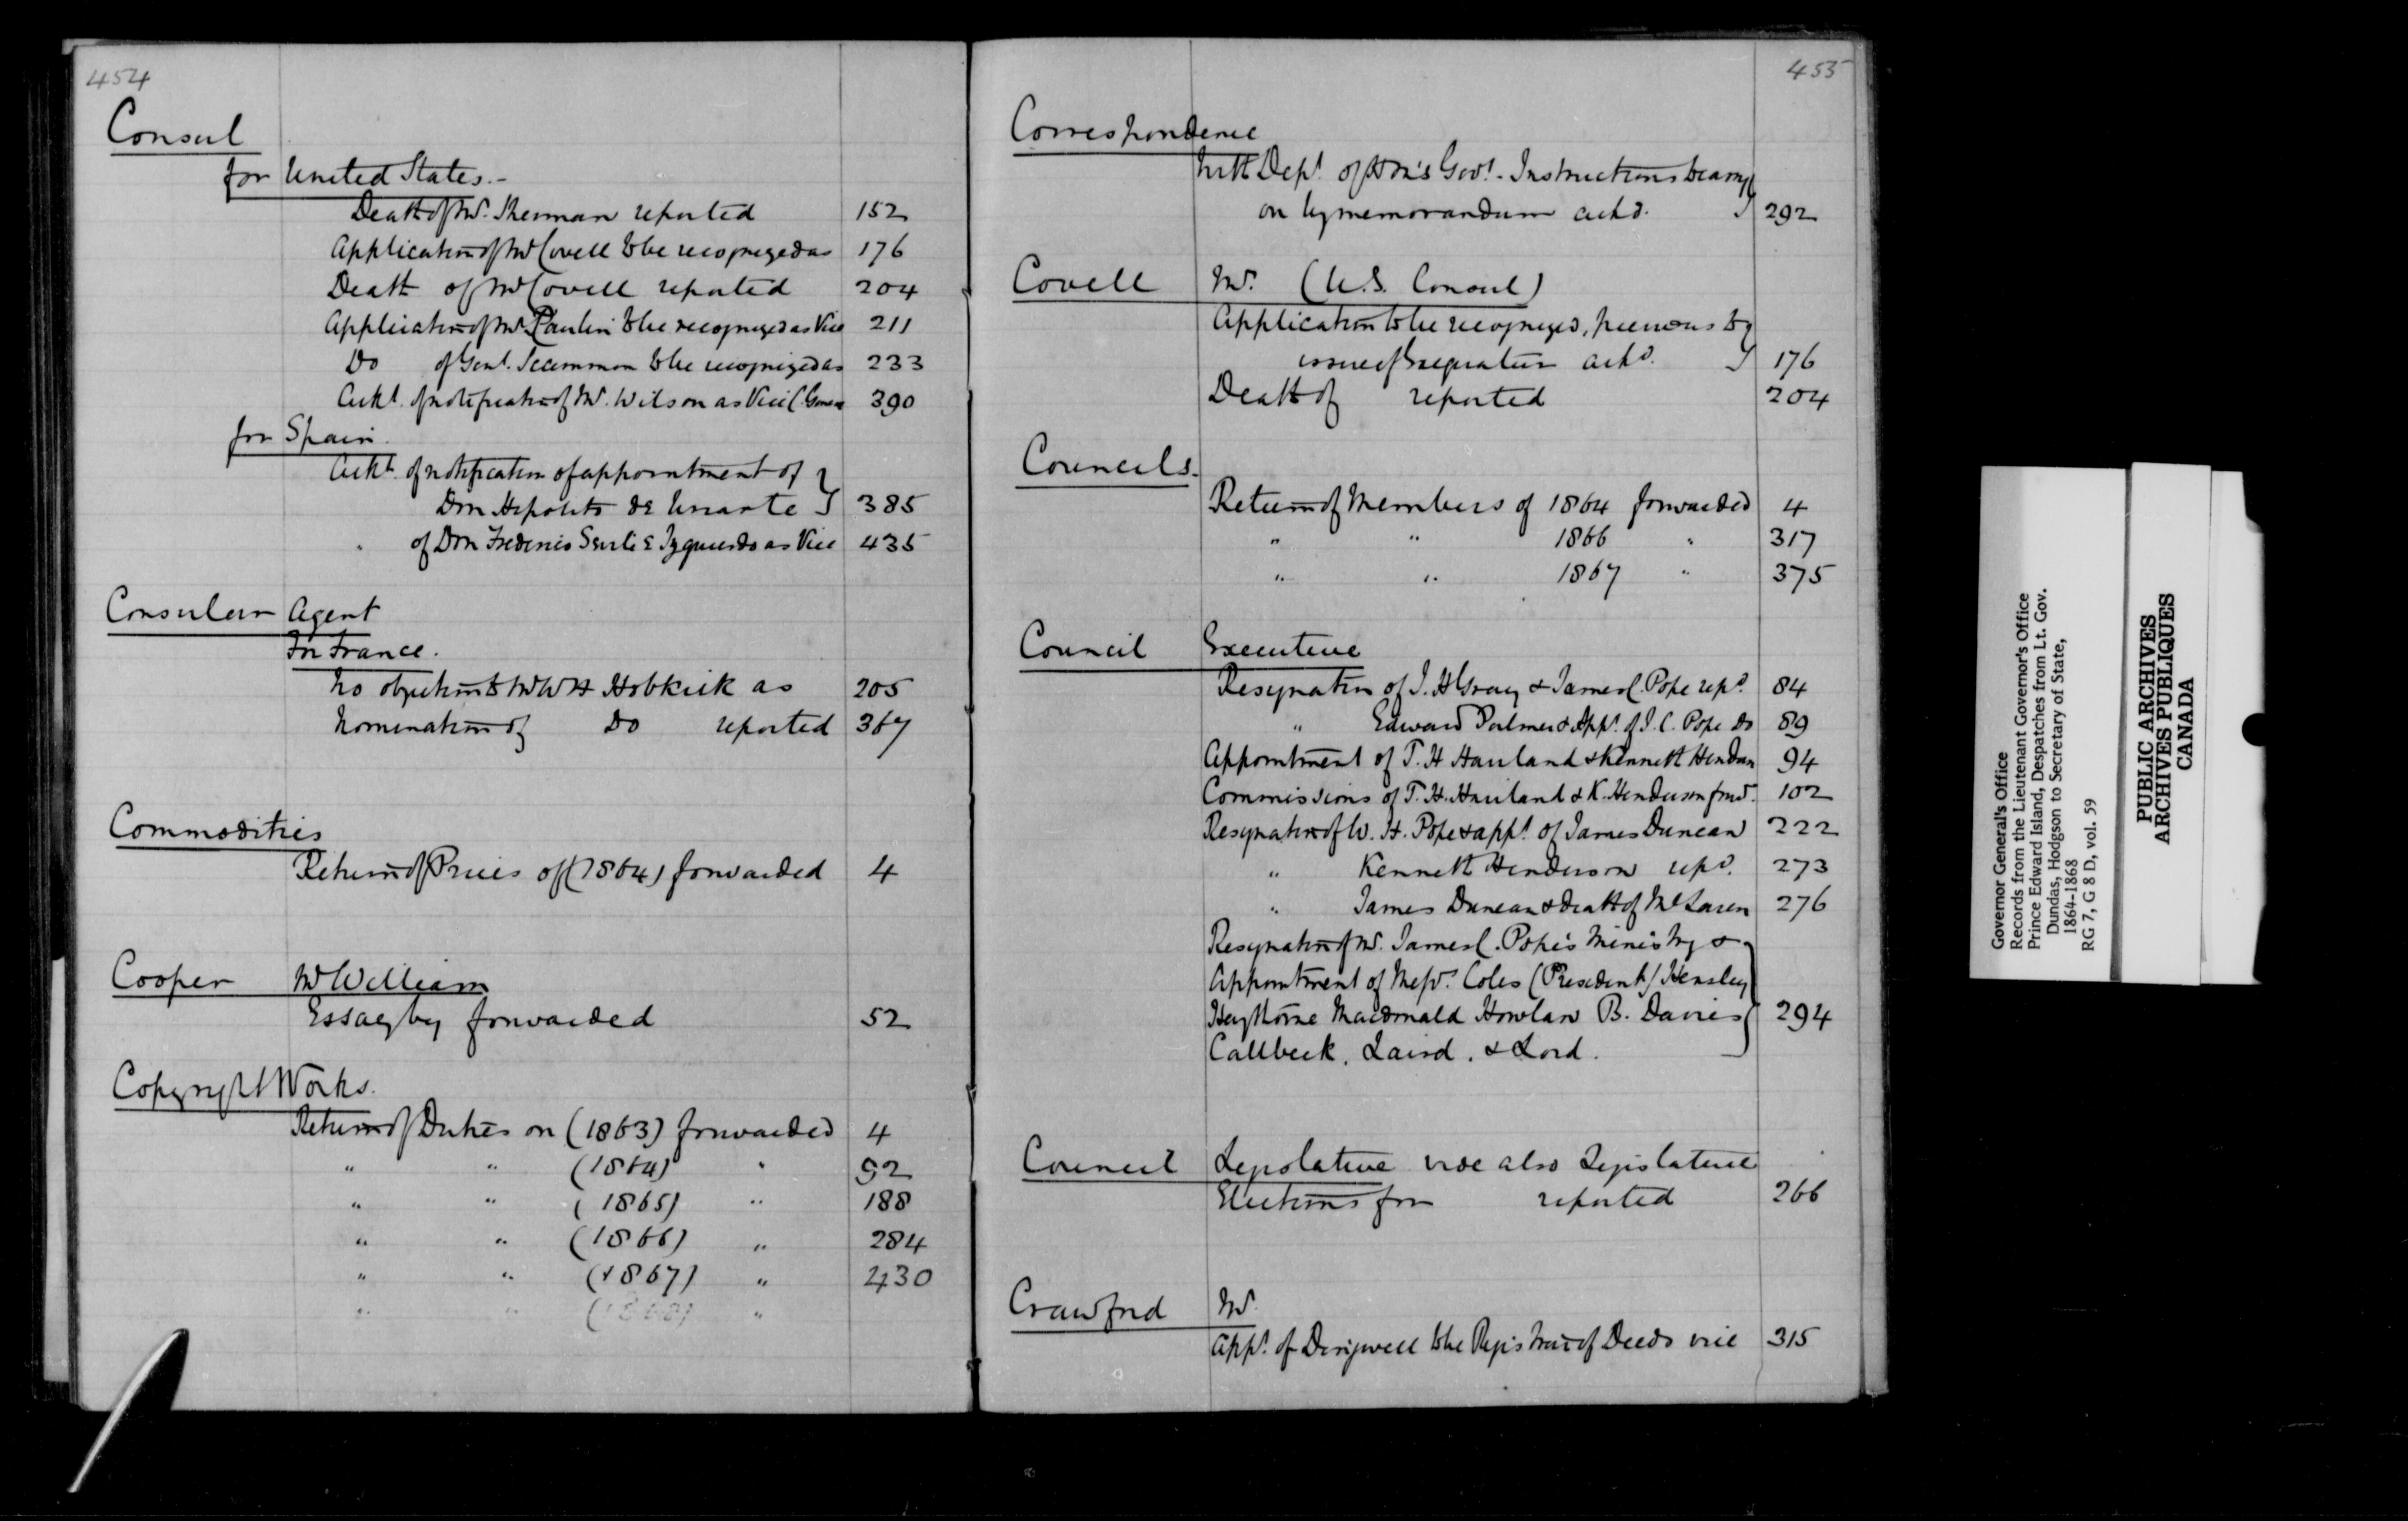 454
Consul
for United States.-
Death of Mr. Sherman reported 152
Application of Mr Covell to be recognized as 176
Death of Mr Covell reported 204
Application of Mr. Paulin to be recognized as Vice 211
Do of Genl. Scammon to be recognized as 233
Ackt. of notification of Mr. Wilson as Vice C. 390
for Spain.
Ackt. of notification of appointment of
Don Hipolito de Uriarte 385
" of Don Frederico Izquierdo as Vice 435
Consular Agent
For France.
No objection to Mr W H Hobkirk as 205
Nomination of Do reported 367
Commodities
Return of Prices of (1864) forwarded 4
Cooper Mr William
Essay by forwarded 52
Copyright Works.
Return of Duties on (1863) forwarded 4
" " (1864) " 92
" " (1865) " 188
" " (1866) " 284
" " (1867) " 430
" " (1868) "
455
Correspondence
with Dept. of H M's Govt. - Instructions bearing
on by memorandum ackd. 292
Covell Mr. (U.S. Consul)
Application to be recognized, previous to
issue of Exequatur ackd. 176
Death of reported 204
Councils.
Return of Members of 1864 forwarded 4
" " 1866 " 317
" " 1867 " 375
Council Executive
Resignation of J. H Gray & James C. Pope repd. 84
" Edward Palmer & Appt. of J. C. Pope Do 89
Appointment of T. H Haviland & Kenneth Henderson 94
Commissions of T. H. Haviland & K. Henderson fwd. 102
Resignation of W. H. Pope & appt. of James Duncan 222
" Kenneth Henderson repd. 273
" James Duncan & death of McLaren 276
Resignation of Mr. James C. Pope's Ministry &
Appointment of Messrs. Coles (President) Hensley
Haythorne Macdonald Howlan B. Davies 294
Callbeck, Laird, & Lord.
Council Legislative vide also Legislature
Elections for reported 266
Crawford Mr.
Appt. of Desrjwell to be Registrar of Deeds vice 315
Governor General's Office
Records from the Lieutenant Governor's Office
Prince Edward Island, Despatches from Lt. Gov.
Dundas, Hodgson to Secretary of State,
1864-1868
RG 7, G 8 D, vol. 59
PUBLIC ARCHIVES
ARCHIVES PUBLIQUES
CANADA